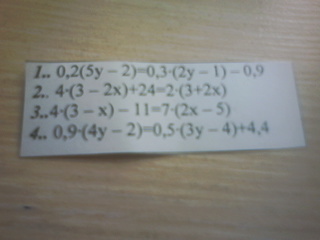 1.. 0,2(5y – 2)=0,3·(2y – 1) – 0,9
2.. 4·(3 – 2x)+24=2·(3+2x)
3..4·(3 – x) – 11=7·(2x – 5)
4.. 0,9·(4y – 2)=0,5·(3y – 4)+4,4